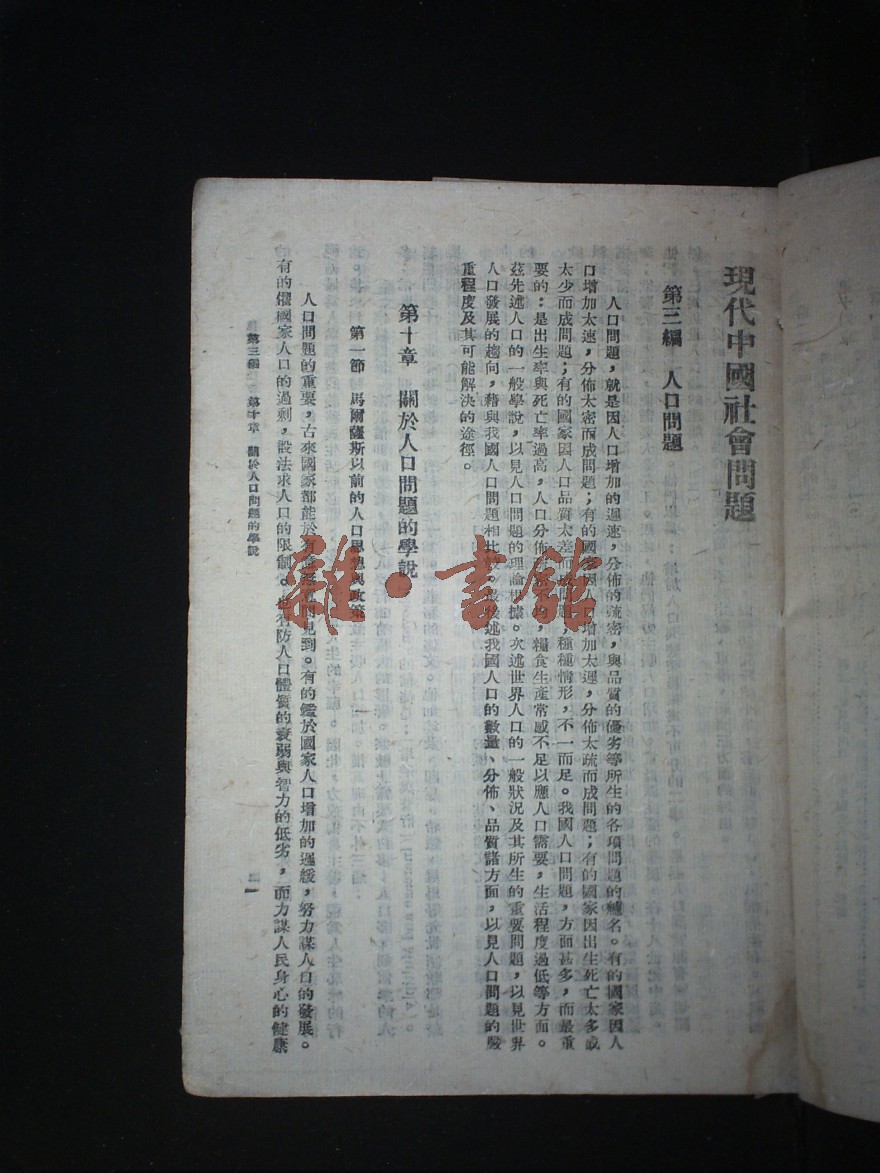 現代中國社會問題
第三編 人口問題
人口問題，就是因人口增加的遲速，分佈的疏密，與品質的優劣等所生的各項問題的總名。有的國家因人
口增加太速，分佈太密而成問題；有的國家因人口增加太遲，分佈太疏而成問題；有的國家因出生死亡太多或
太少而成問題；有的國家因人口品質太差而成問題，種種情形，不一而足。我國人口問題，方面甚多，而最重
要的：是出生率與死亡率過高，人口分佈不均，糧食生產常感不足以應人口需要，生活程度過低等方面。
茲先述人口的一般學說，以見人口問題的理論根據。次述世界人口的一般狀況及其所生的重要問題，以見世界
人口發展的趨向，藉與我國人口問題相比較。最後述我國人口的數量、分佈、品質諸方面，以見人口問題的嚴
重程度及其可能解決的途徑。
第十章 關於人口問題的學說
第一節 馬爾薩斯以前的人口思想與政策
人口問題的重要，古來國家都能於有意無意間見到。有的鑑於國家人口增加的遲緩，努力謀人口的發展。
有的懼國家人口的過剩，設法求人口的限制。也有防人口體質的衰弱與智力的低劣，而力謀人民身心的健康
第三編 第十章 關於人口問題的學說
一
雜·書館